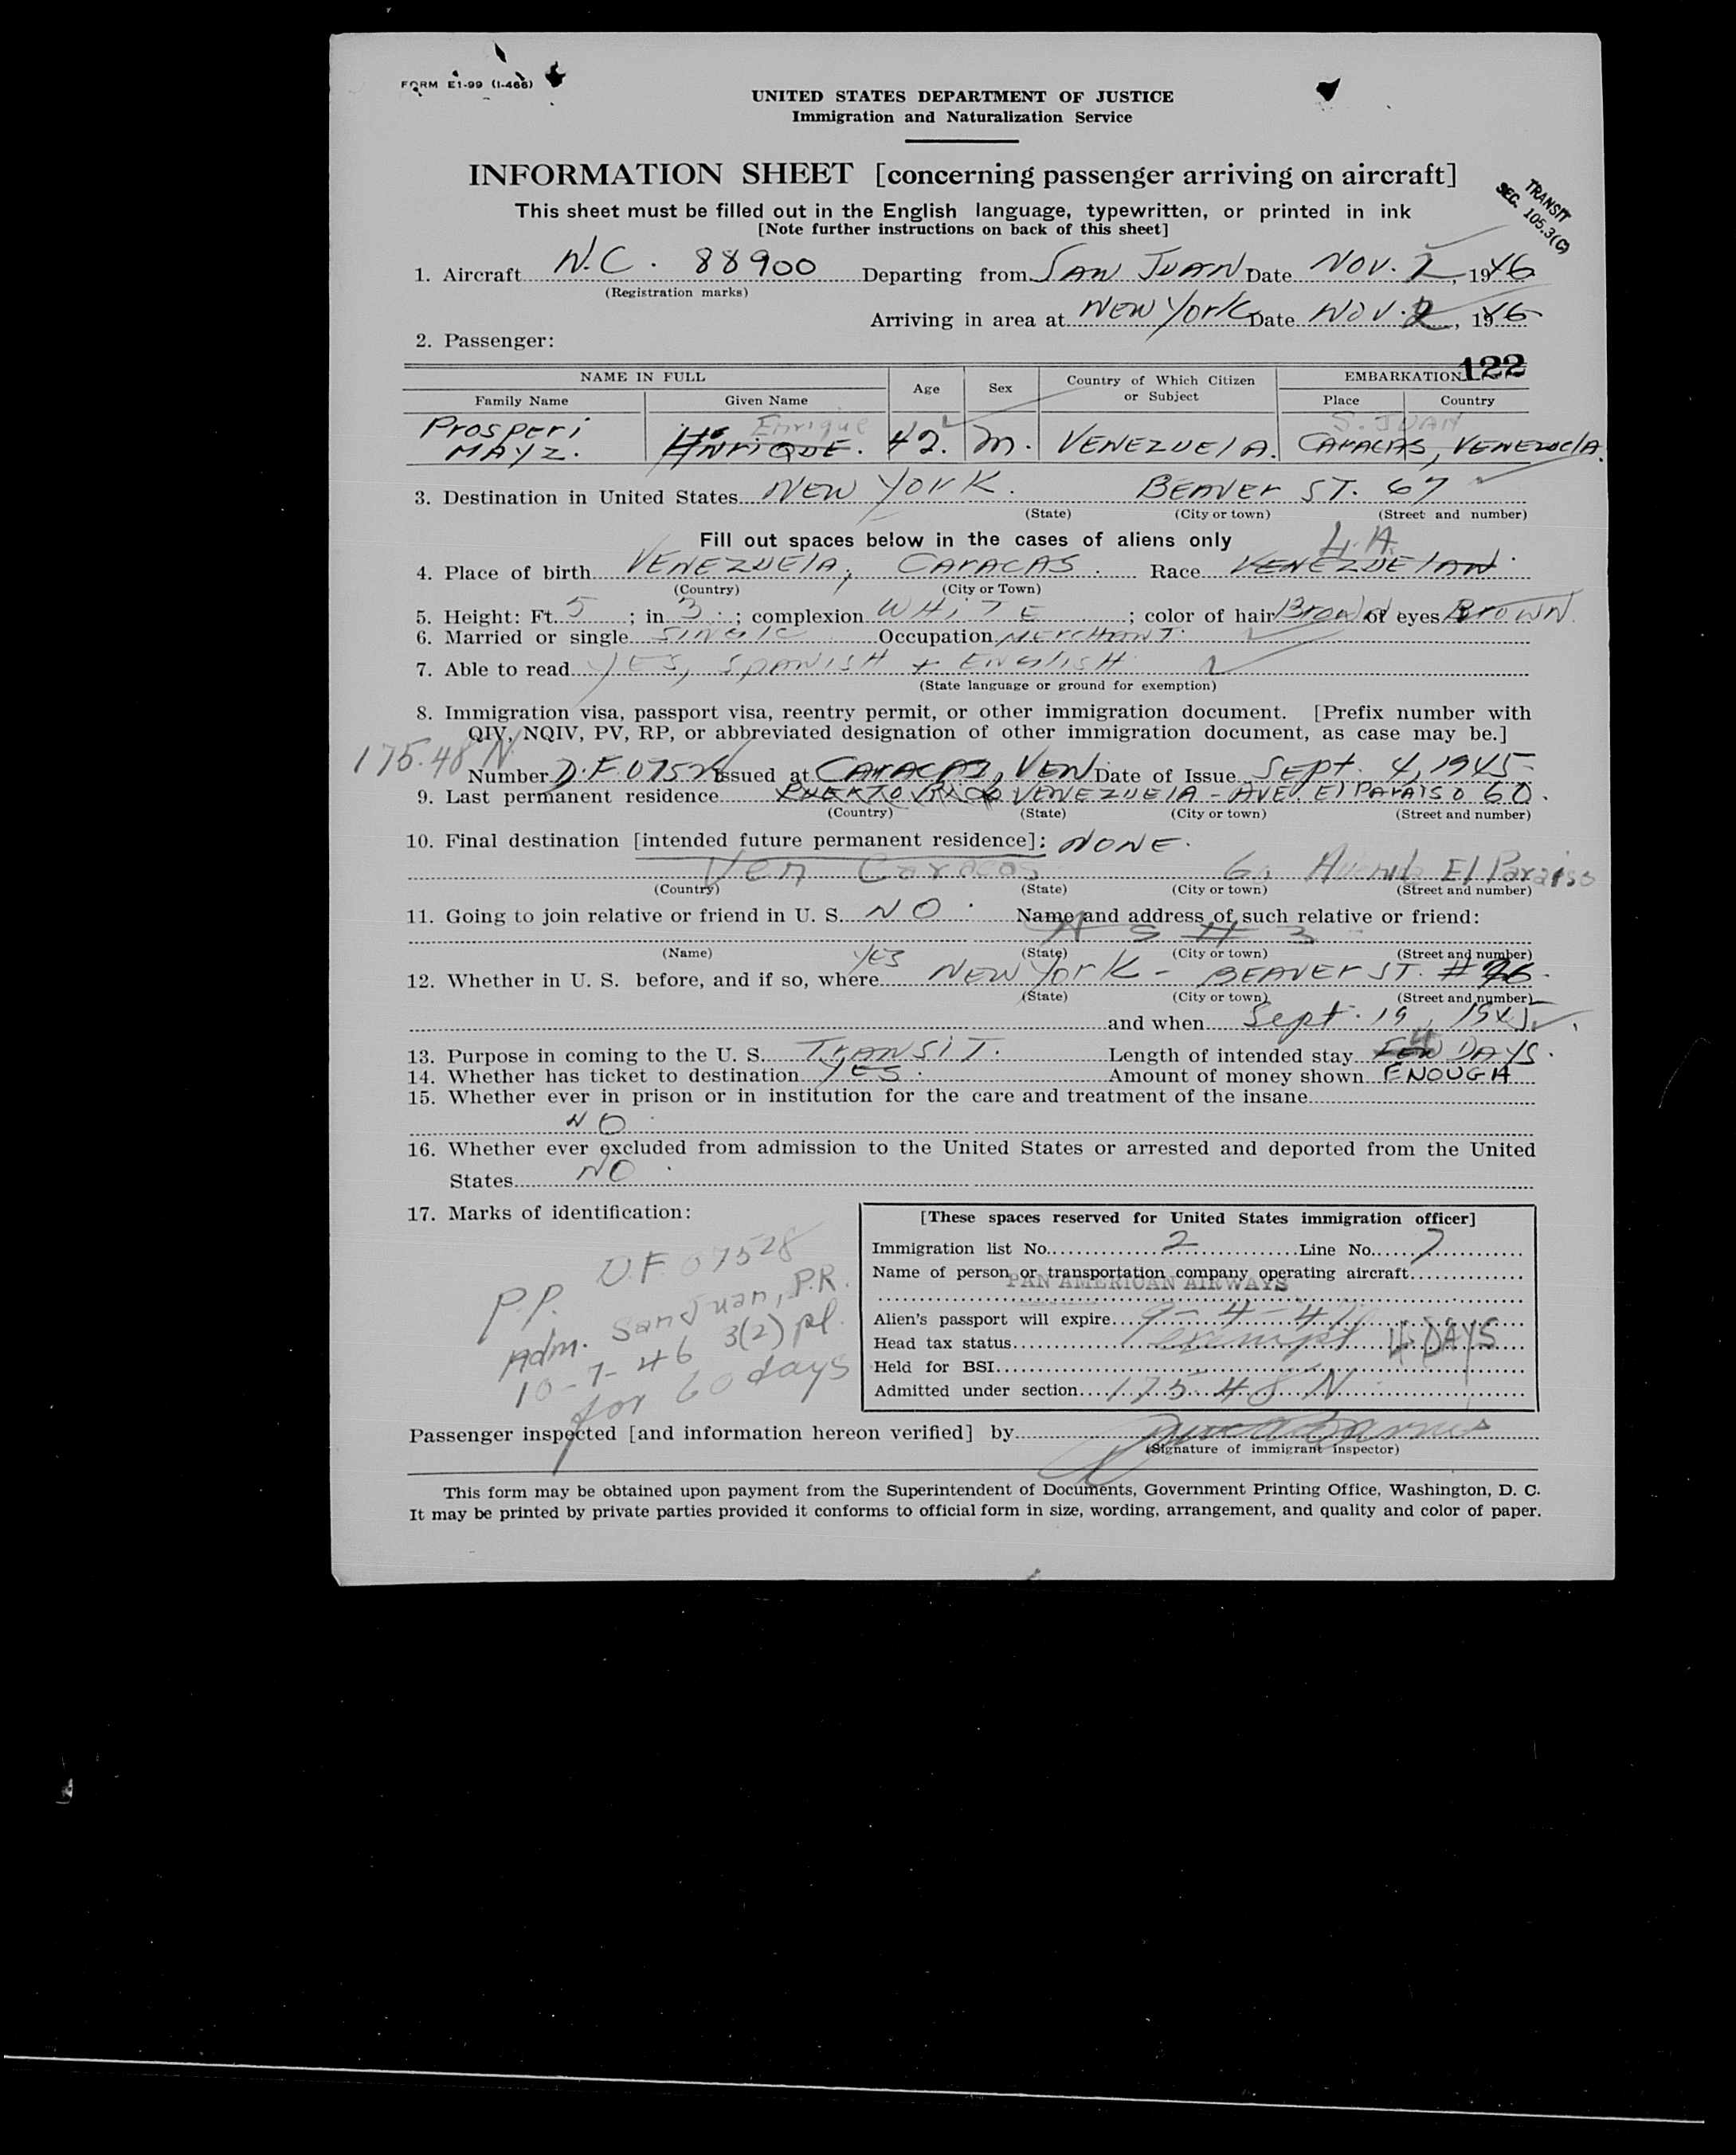 FORM E1-99 (I-466)
UNITED STATES DEPARTMENT OF JUSTICE
Immigration and Naturalization Service
INFORMATION SHEET [concerning passenger arriving on aircraft]
TRANSIT
SEC. 105.3(C)
This sheet must be filled out in the English language, typewritten, or printed in ink
[Note further instructions on back of this sheet]
1. Aircraft N.C. 88900 Departing from SAN JUAN Date NOV. 2, 1946
(Registration marks)
Arriving in area at NEW YORK Date NOV. 2, 1946
2. Passenger:
122
NAME IN FULL Age Sex Country of Which Citizen or Subject EMBARKATION
Family Name Given Name Place Country
Prosperi Enrique S. JUAN
MAYZ. ENRIQUE. 42. M. VENEZUELA. CARACAS, VENEZUELA.
3. Destination in United States NEW YORK. BEAVER ST. 67
(State) (City or town) (Street and number)
Fill out spaces below in the cases of aliens only
4. Place of birth VENEZUELA, CARACAS. Race VENEZUELAN
(Country) (City or Town)
5. Height: Ft. 5; in 3; complexion WHITE; color of hair BROWN of eyes BROWN.
6. Married or single SINGLE Occupation MERCHANT.
7. Able to read YES, SPANISH + ENGLISH
(State language or ground for exemption)
8. Immigration visa, passport visa, reentry permit, or other immigration document. [Prefix number with
QIV, NQIV, PV, RP, or abbreviated designation of other immigration document, as case may be.]
175.48 N
Number D.F 07528 Issued at CARACAS, VEN Date of Issue Sept. 4, 1945
9. Last permanent residence PUERTO RICO VENEZUELA - AVE. El PARAISO 60.
(Country) (State) (City or town) (Street and number)
10. Final destination [intended future permanent residece]: NONE.
Ven Caracas 60 Avenida El Paraiso
(Country) (State) (City or town) (Street and number)
11. Going to join relative or friend in U. S. NO. Name and address of such relative or friend:
(Name) (State) (City or town) (Street and number)
YES
12. Whether in U. S. before, and if so, where NEW YORK - BEAVER ST. #76
(State) (City or town) (Street and number)
and when Sept. 19, 1945
13. Purpose in coming to the U. S. TRANSIT. Length of intended stay 4 DAYS.
14. Whether has ticket to destination YES. Amount of money shown ENOUGH
15. Whether ever in prison or in institution for the care and treatment of the insane
NO
16. Whether ever excluded from admission to the United States or arrested and deported from the United
States NO
17. Marks of identification:
P.P. D.F. 07528
Adm. San Juan, P.R.
10-7-46 3(2) pl.
for 60 days
[These spaces reserved for United States immigration officer]
Immigration list No. 2 Line No. 7
Name of person or transportation company operating aircraft
PAN AMERICAN AIRWAYS
Alien's passport will expire 9-4-47
Head tax status exempt 4 DAYS
Held for BSI
Admitted under section 175.48 N
Passenger inspected [and information hereon verified] by
(Signature of immigrant inspector)
This form may be obtained upon payment from the Superintendent of Documents, Government Printing Office, Washington, D. C.
It may be printed by private parties provided it conforms to official form in size, wording, arrangement, and quality and color of paper.